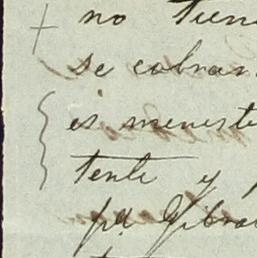 no tien
se cobran
es meneste
tente y
pª Gibra